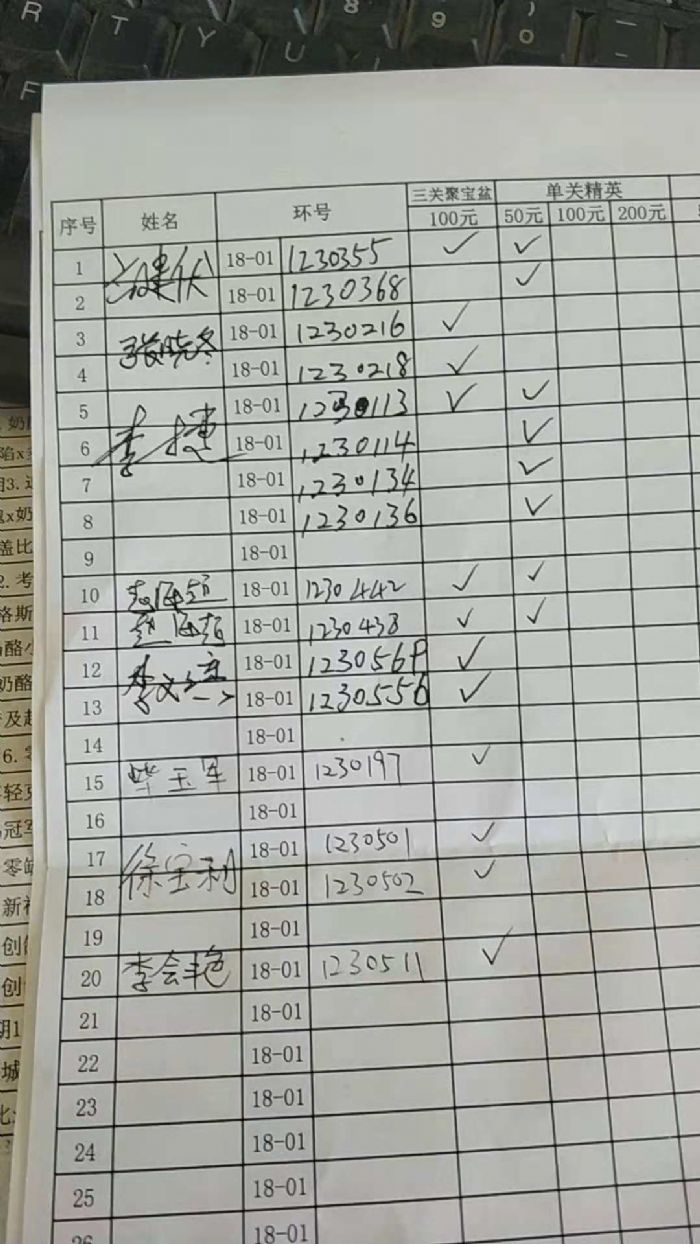 R T Y U 8 9 0
F
序号 姓名 环号 三关聚宝盆 单关精英
100元 50元 100元 200元
1 18-01 1230355 ✓ ✓
2 18-01 1230368 ✓
3 张晓冬 18-01 1230216 ✓
4 18-01 1230218 ✓
5 李捷 18-01 1230113 ✓ ✓
6 18-01 1230114 ✓
7 18-01 1230134 ✓
8 18-01 1230136 ✓
9 18-01
10 18-01 1230442 ✓ ✓
11 18-01 1230438 ✓ ✓
12 18-01 ✓
13 18-01 1230556 ✓
14 18-01
15 毕玉军 18-01 1230197 ✓
16 18-01
17 徐宝利 18-01 1230501 ✓
18 18-01 1230502 ✓
19 18-01
20 李会艳 18-01 1230511 ✓
21 18-01
22 18-01
23 18-01
24 18-01
25 18-01
26 18-01